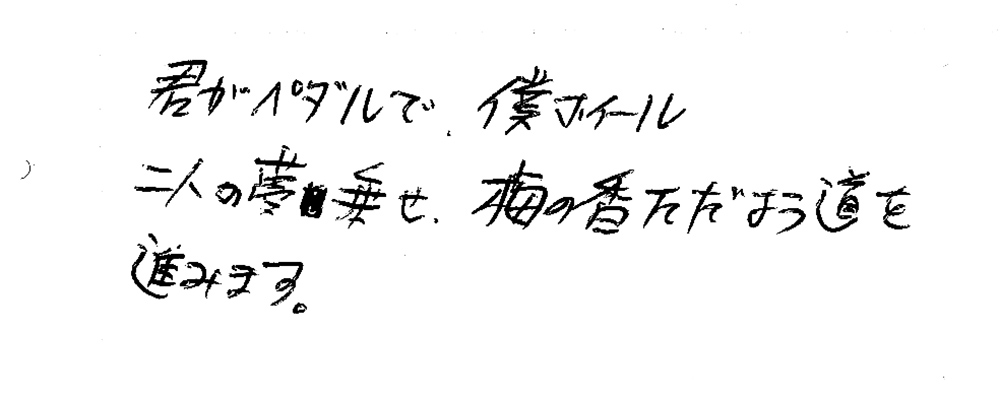 君がペダルで、僕ホイール
二人の夢乗せ、梅の香ただよう道を
進みます。